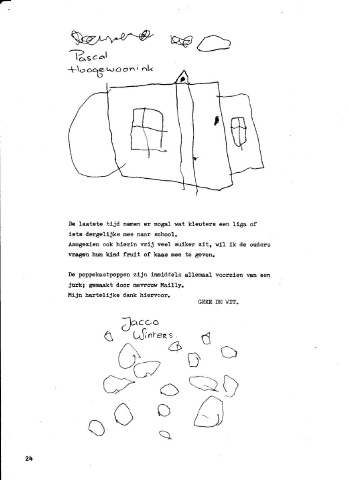 Pascal
Hoogewoonink
De laatste tijd namen er nogal wat kleuters een liga of
iets dergelijks mee naar school.
Aangezien ook hierin vrij veel suiker zit, wil ik de ouders
vragen hun kind fruit of kaas mee te geven.
De poppekastpoppen zijn inmiddels allemaal voorzien van een
jurk; gemaakt door mevrouw Mailly.
Mijn hartelijke dank hiervoor.
GEKE DE WIT.
Jacco
Winters.
24